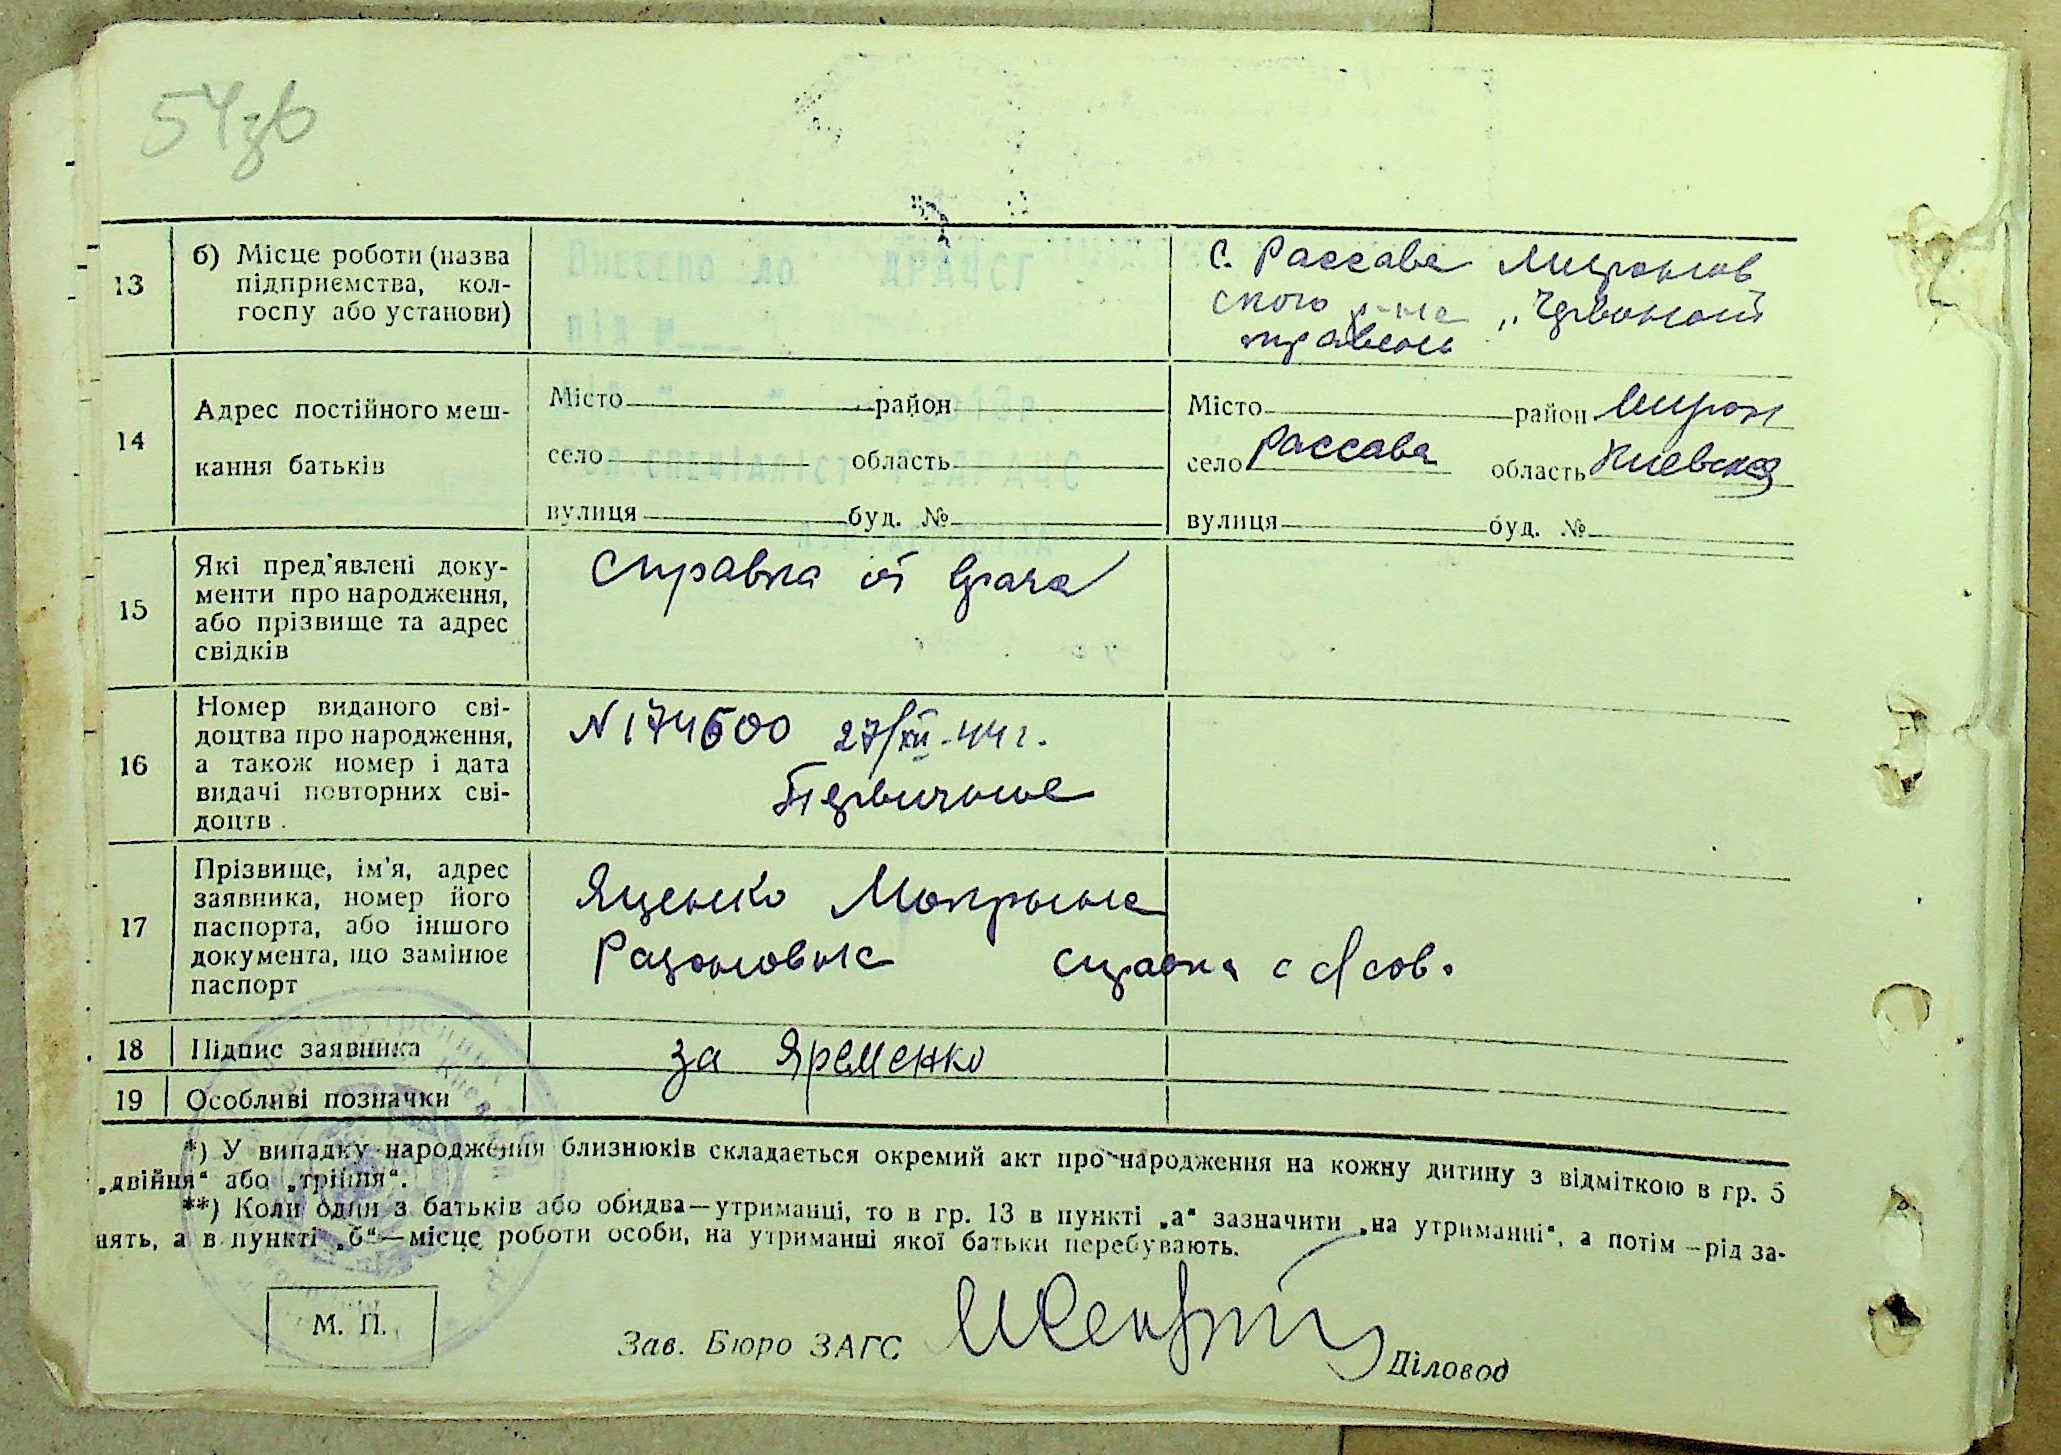 54зв
13
б) Місце роботи (назва
підприємства, кол-
госпу або установи)
Внесено до ДРАЦСГ
с. Рассава Миронов
ского р-на „Червоный
14
Адрес постійного меш-
кання батьків
Місто район
село область
вулиця буд. №
Місто район Мирон
село Рассава область Киевская
вулиця буд. №
15
Які пред'явлені доку-
менти про народження,
або прізвище та адрес
свідків
Справка от врача
16
Номер виданого сві-
доцтва про народження,
а також номер і дата
видачі повторних сві-
доцтв.
N 174600 27/XII-44 г.
Первичное
17
Прізвище, ім'я, адрес
заявника, номер його
паспорта, або іншого
документа, що замінює
паспорт
Яценко Мокрына
справка с с/сов.
18
Підпис заявника
за Яременко
19
Особливі позначки
*) У випадку народження близнюків складається окремий акт про народження на кожну дитину з відміткою в гр. 5
„двійня“ або „трійня“.
**) Коли один з батьків або обидва—утриманці, то в гр. 13 в пункті „а“ зазначити „на утриманні“, а потім—рід за-
нять, а в пункті „б“—місце роботи особи, на утриманні якої батьки перебувають.
М. П.
Зав. Бюро ЗАГС
Діловод